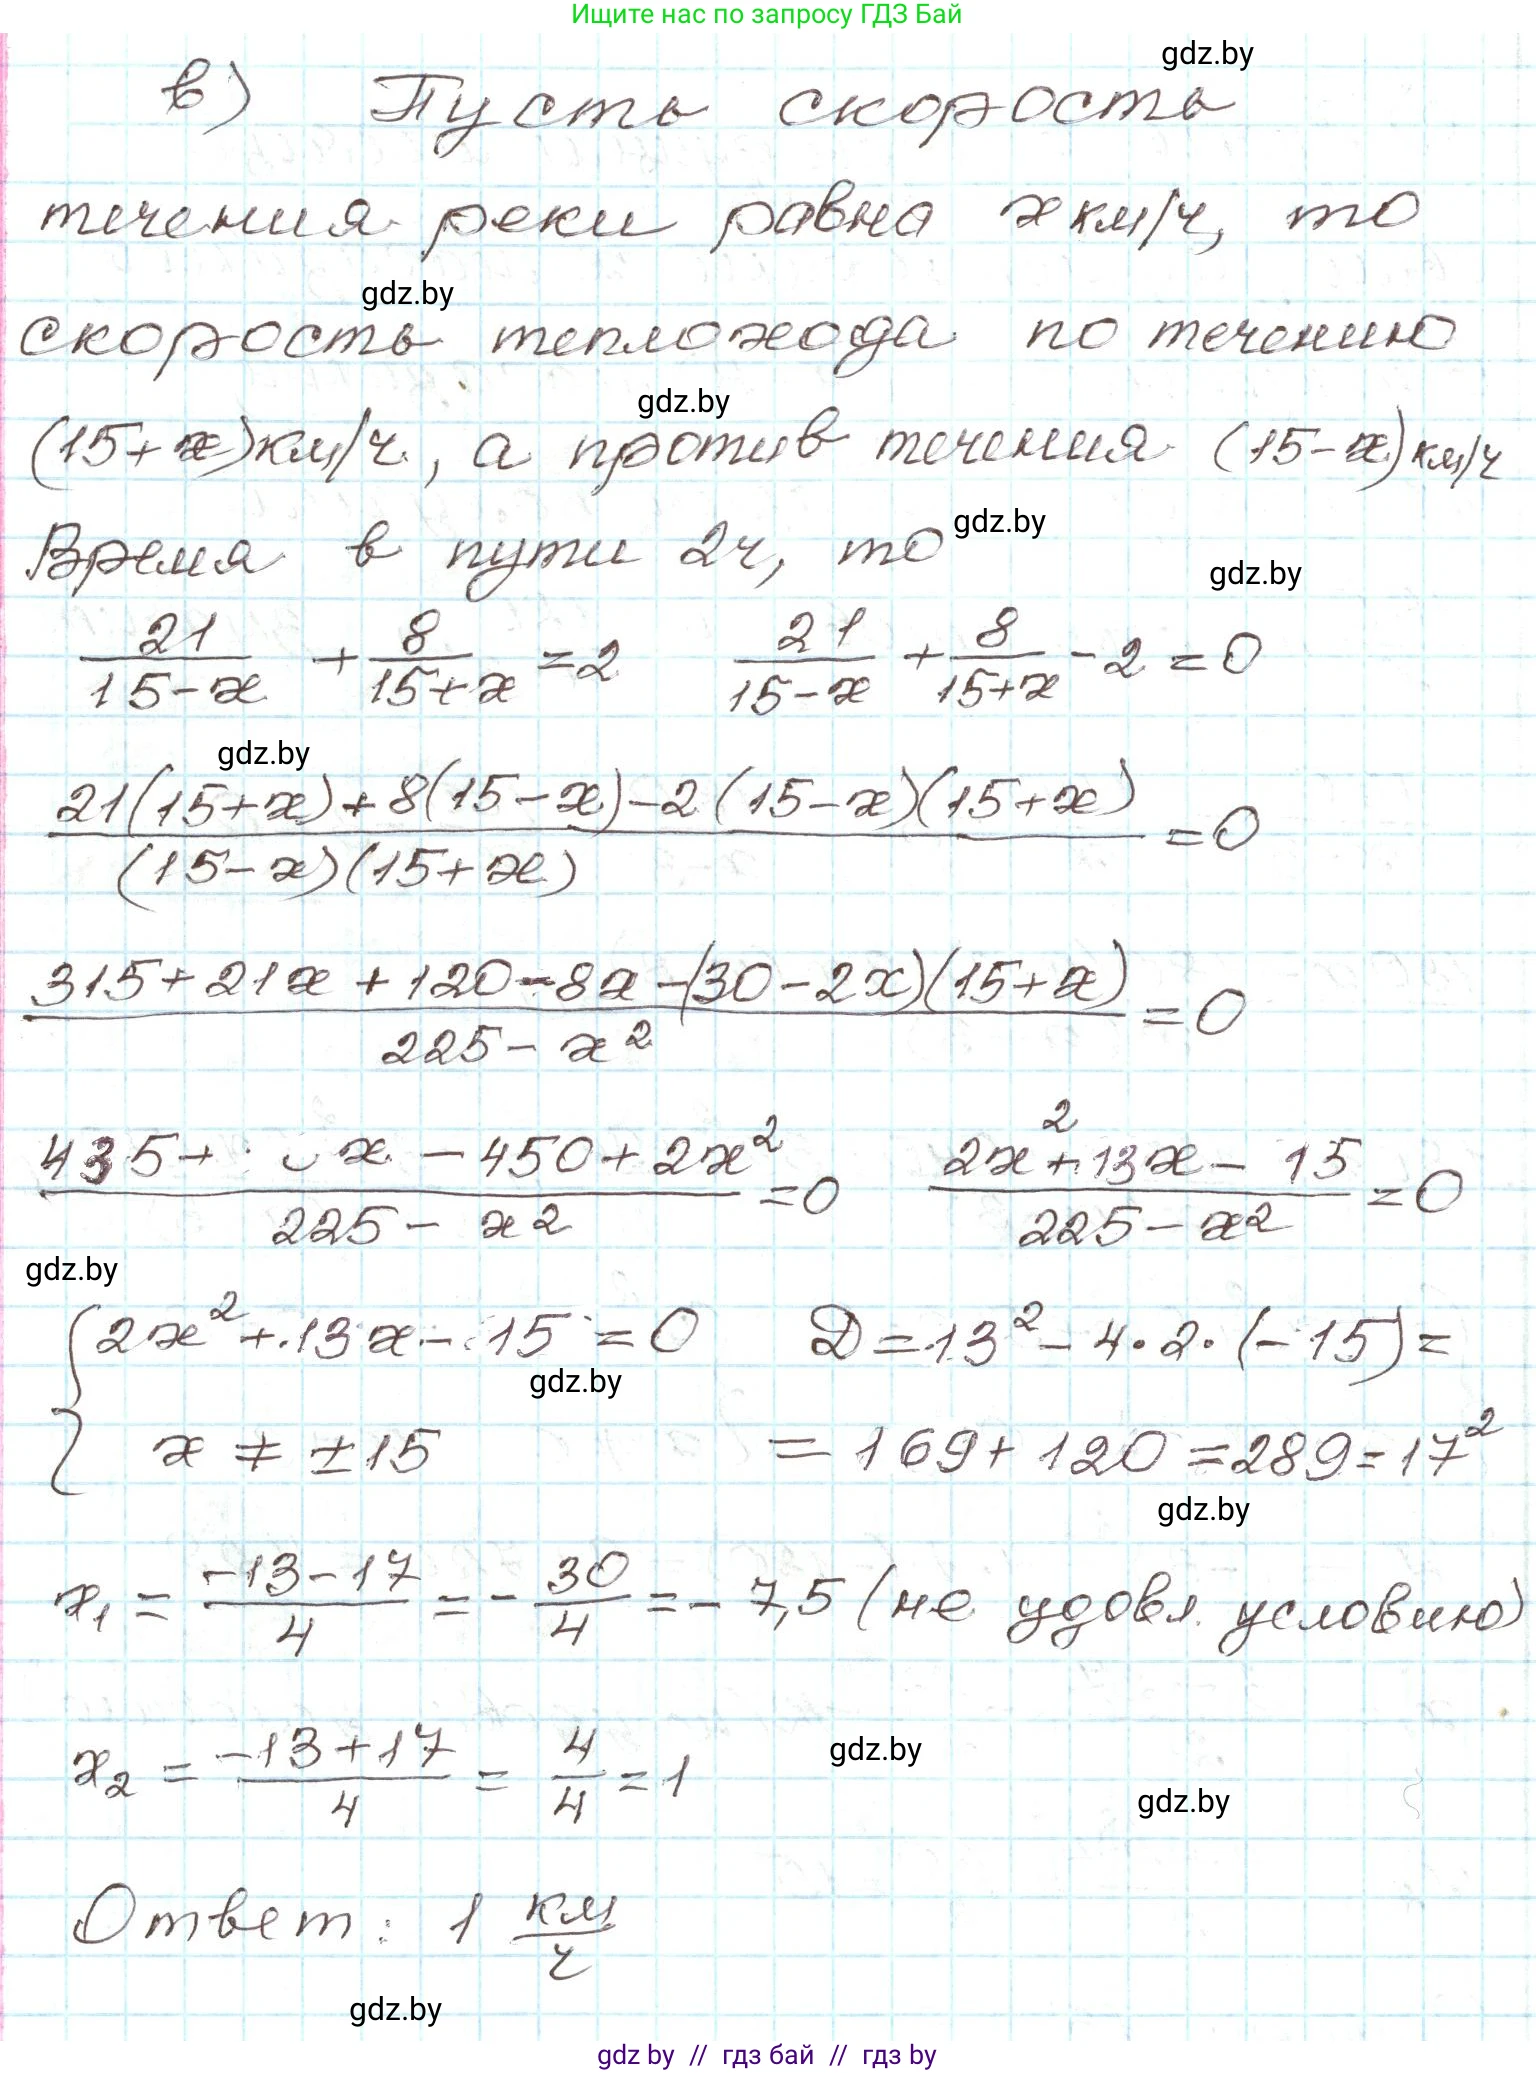 Ищите нас по запросу ГДЗ Бай
gdz.by
в) Пусть скорость
течения реки равна x км/ч, то
gdz.by
скорость теплохода по течению
gdz.by
(15+x)км/ч, а против течения (15-x)км/ч
Время в пути 2ч, то
gdz.by
gdz.by
21/(15-x) + 8/(15+x) = 2   21/(15-x) + 8/(15+x) - 2 = 0
gdz.by
(21(15+x)+8(15-x)-2(15-x)(15+x))/((15-x)(15+x)) = 0
(315+21x+120-8x-(30-2x)(15+x))/(225-x²) = 0
(435+ x-450+2x²)/(225-x²) = 0   (2x²+13x-15)/(225-x²) = 0
gdz.by
{2x²+13x-15=0   D=13²-4·2·(-15)=
gdz.by
x≠±15   =169+120=289=17²
gdz.by
x₁ = (-13-17)/4 = -30/4 = -7,5 (не удовл. условию)
x₂ = (-13+17)/4 = 4/4 = 1
gdz.by
gdz.by
Ответ: 1 км/ч
gdz.by
gdz by // гдз бай // гдз by